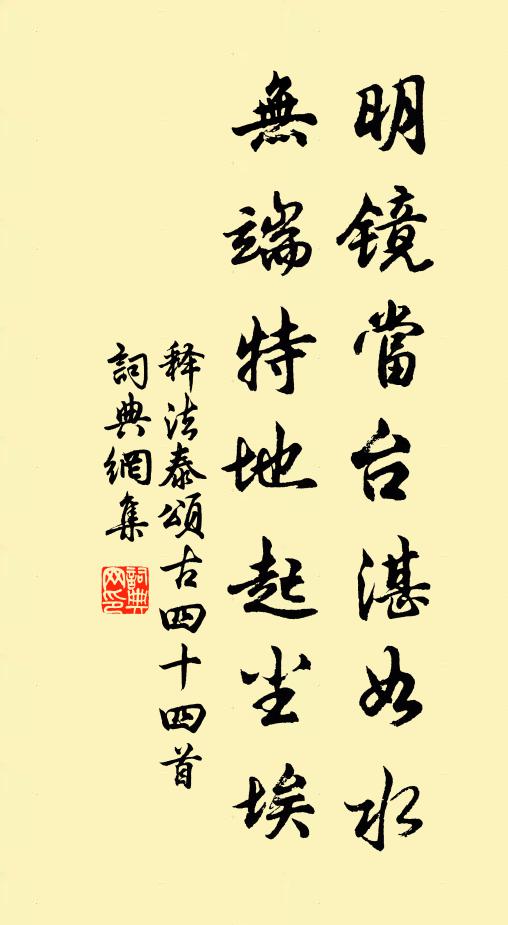 明鏡當台湛如水
無端特地起尘埃
释法泰頌古四十四首
詞典網集
詞典
网印